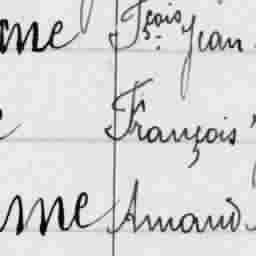 me Fçois Jean
François
me Amand